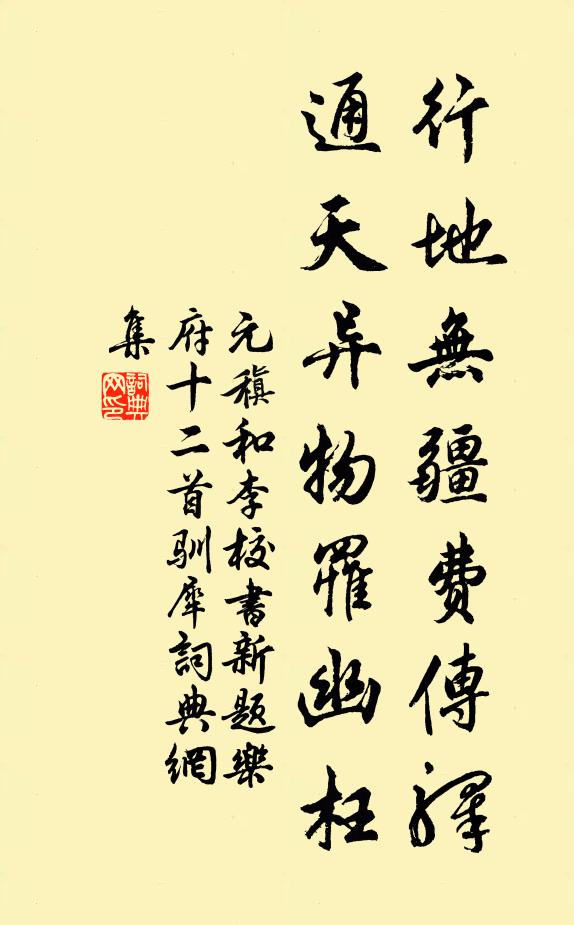 行地無疆費傳驛
通天异物罹幽枉
元稹和李校書新題樂
府十二首驯犀詞典網
集
詞典
网印